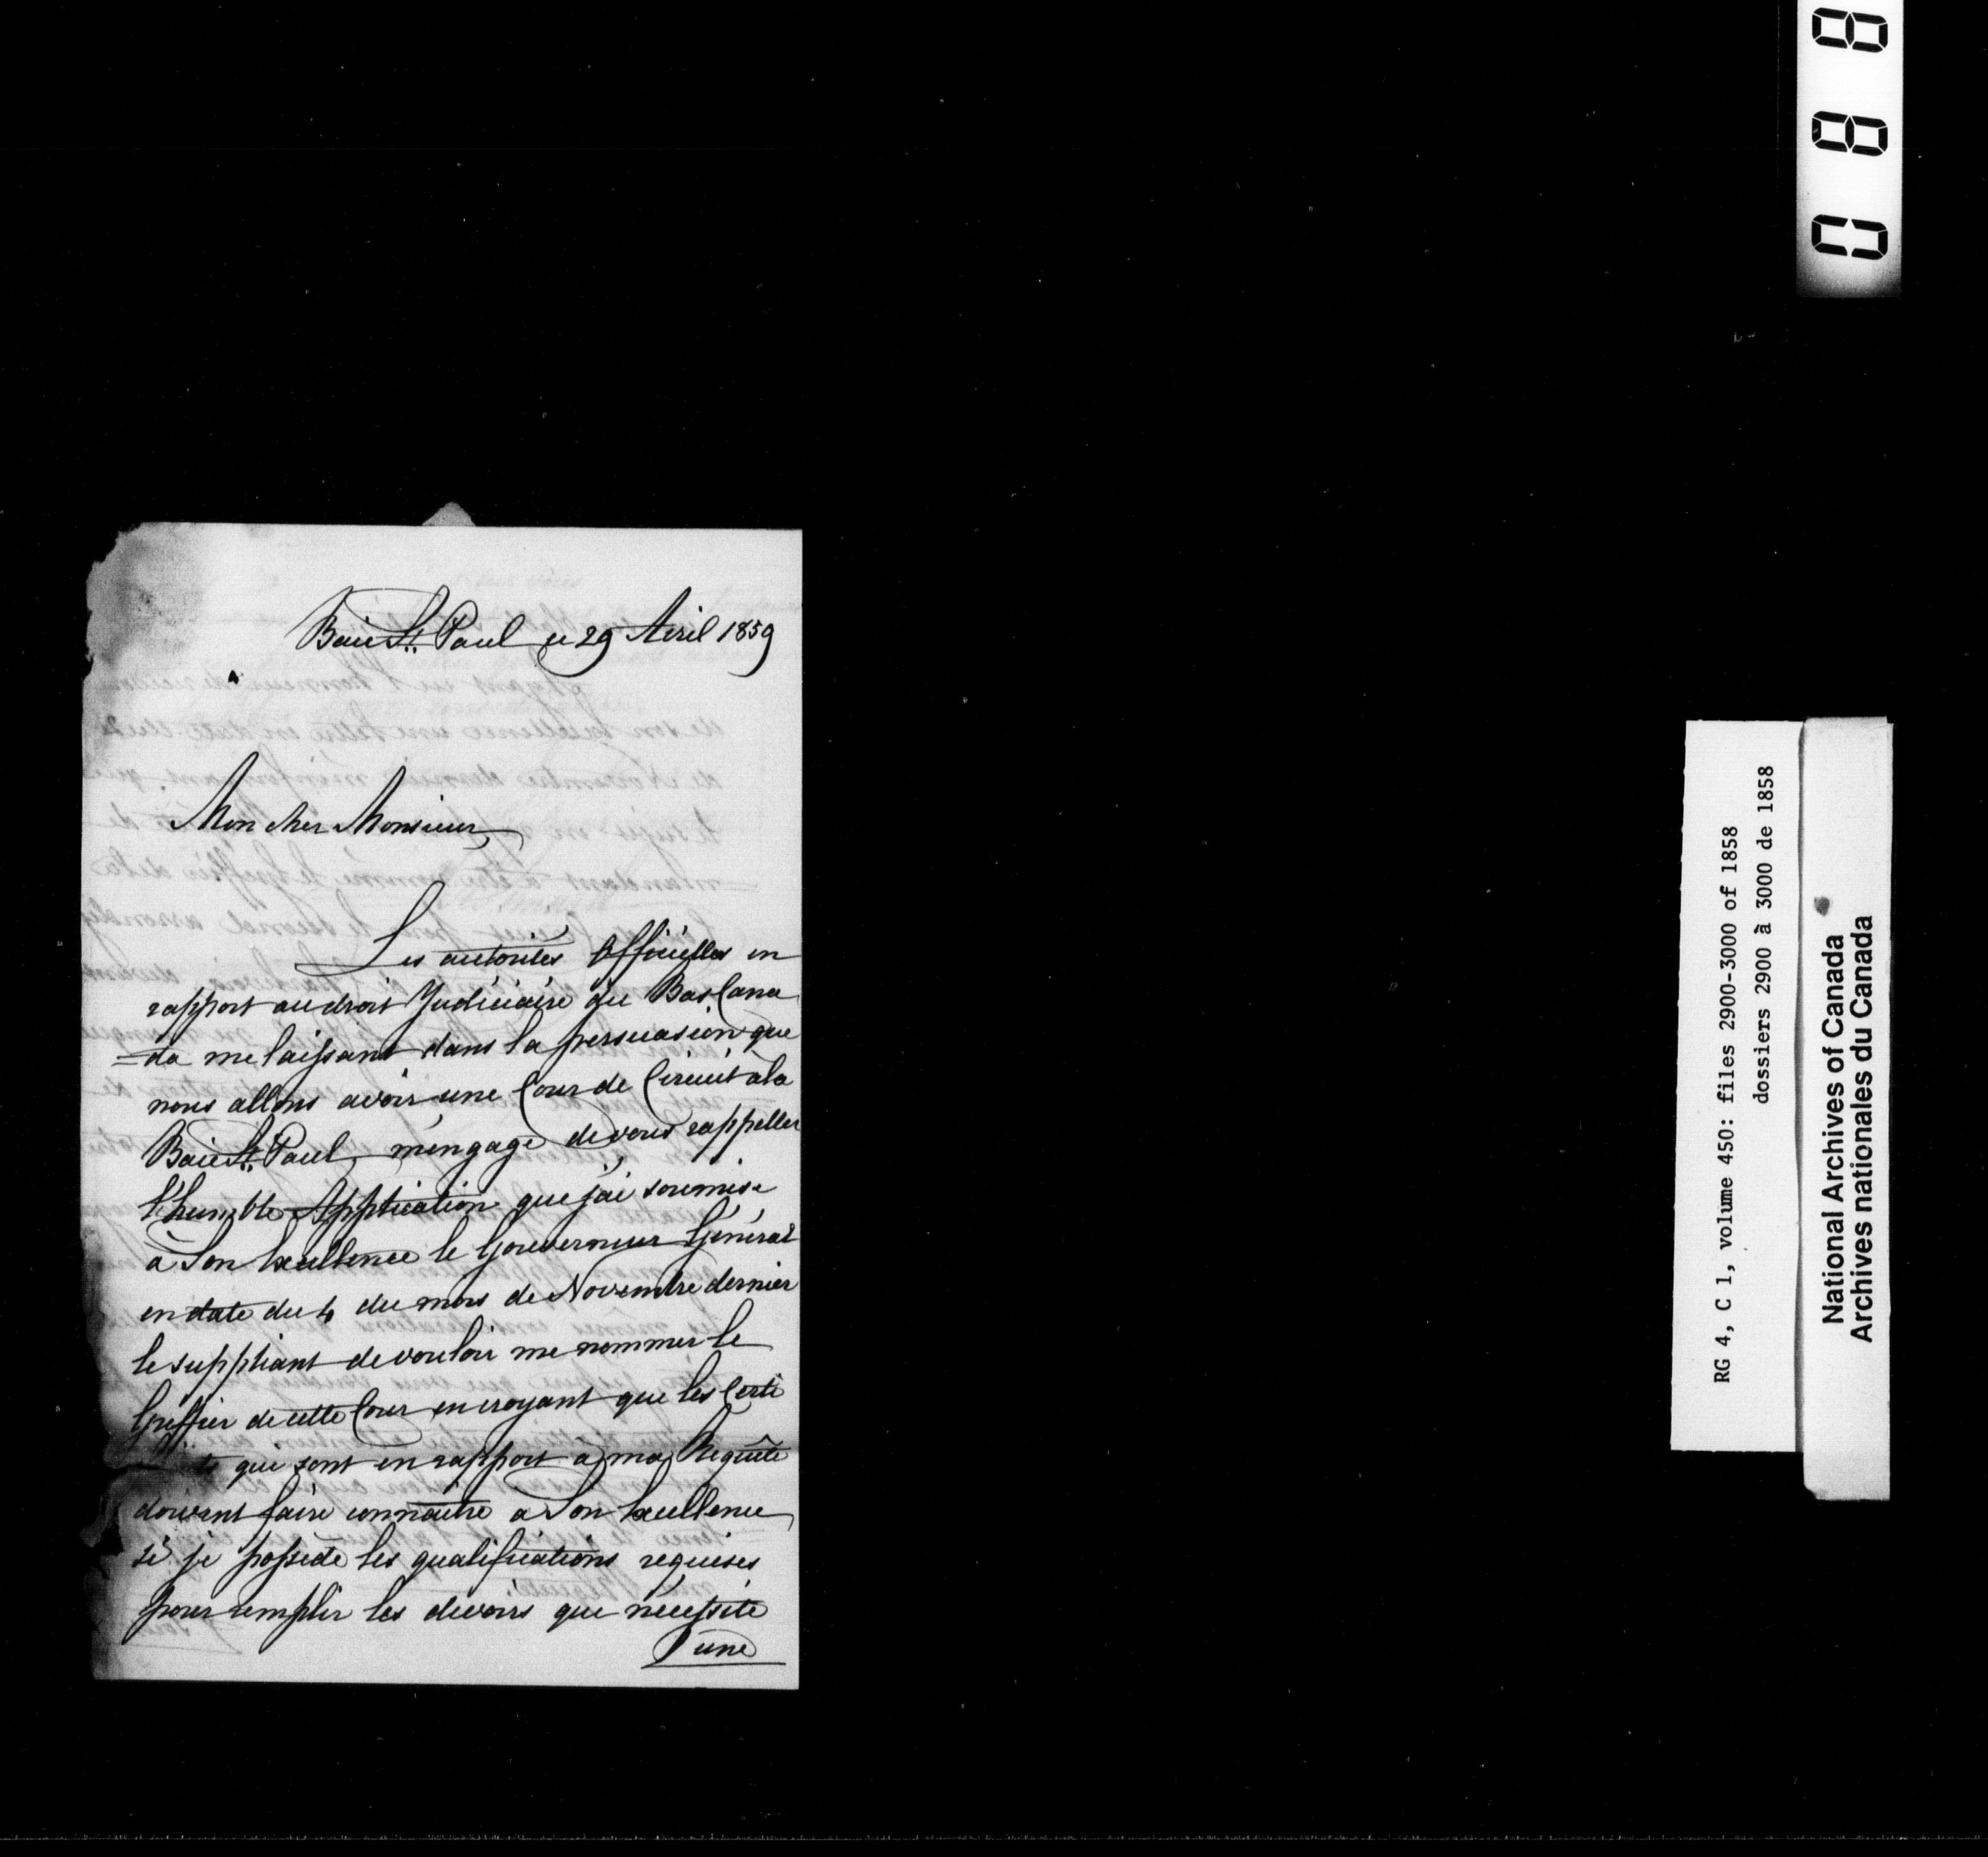 Baie St. Paul ce 29 Avril 1859
Mon cher Monsieur,
Les autorités Officielles en
rapport au droit Judiciaire du Bas Cana
=da me laissant dans la persuasion que
nous allons avoir une Cour de Circuit à la
Baie St. Paul, m'engage de vous rappeller
l'humble Application que j'ai soumise
à Son Excellence le Gouverneur Général
en date du 4 du mois de Novembre dernier
le suppliant de vouloir me nommer le
Greffier de cette Cour en croyant que les Certi
qui sont en rapport à ma Requête
doivent faire connaître a Son Excellence
si je possède les qualifications requises
pour remplir les devoirs que nécessite
une
088
RG 4, C 1, volume 450: files 2900-3000 of 1858
dossiers 2900 à 3000 de 1858
National Archives of Canada
Archives nationales du Canada